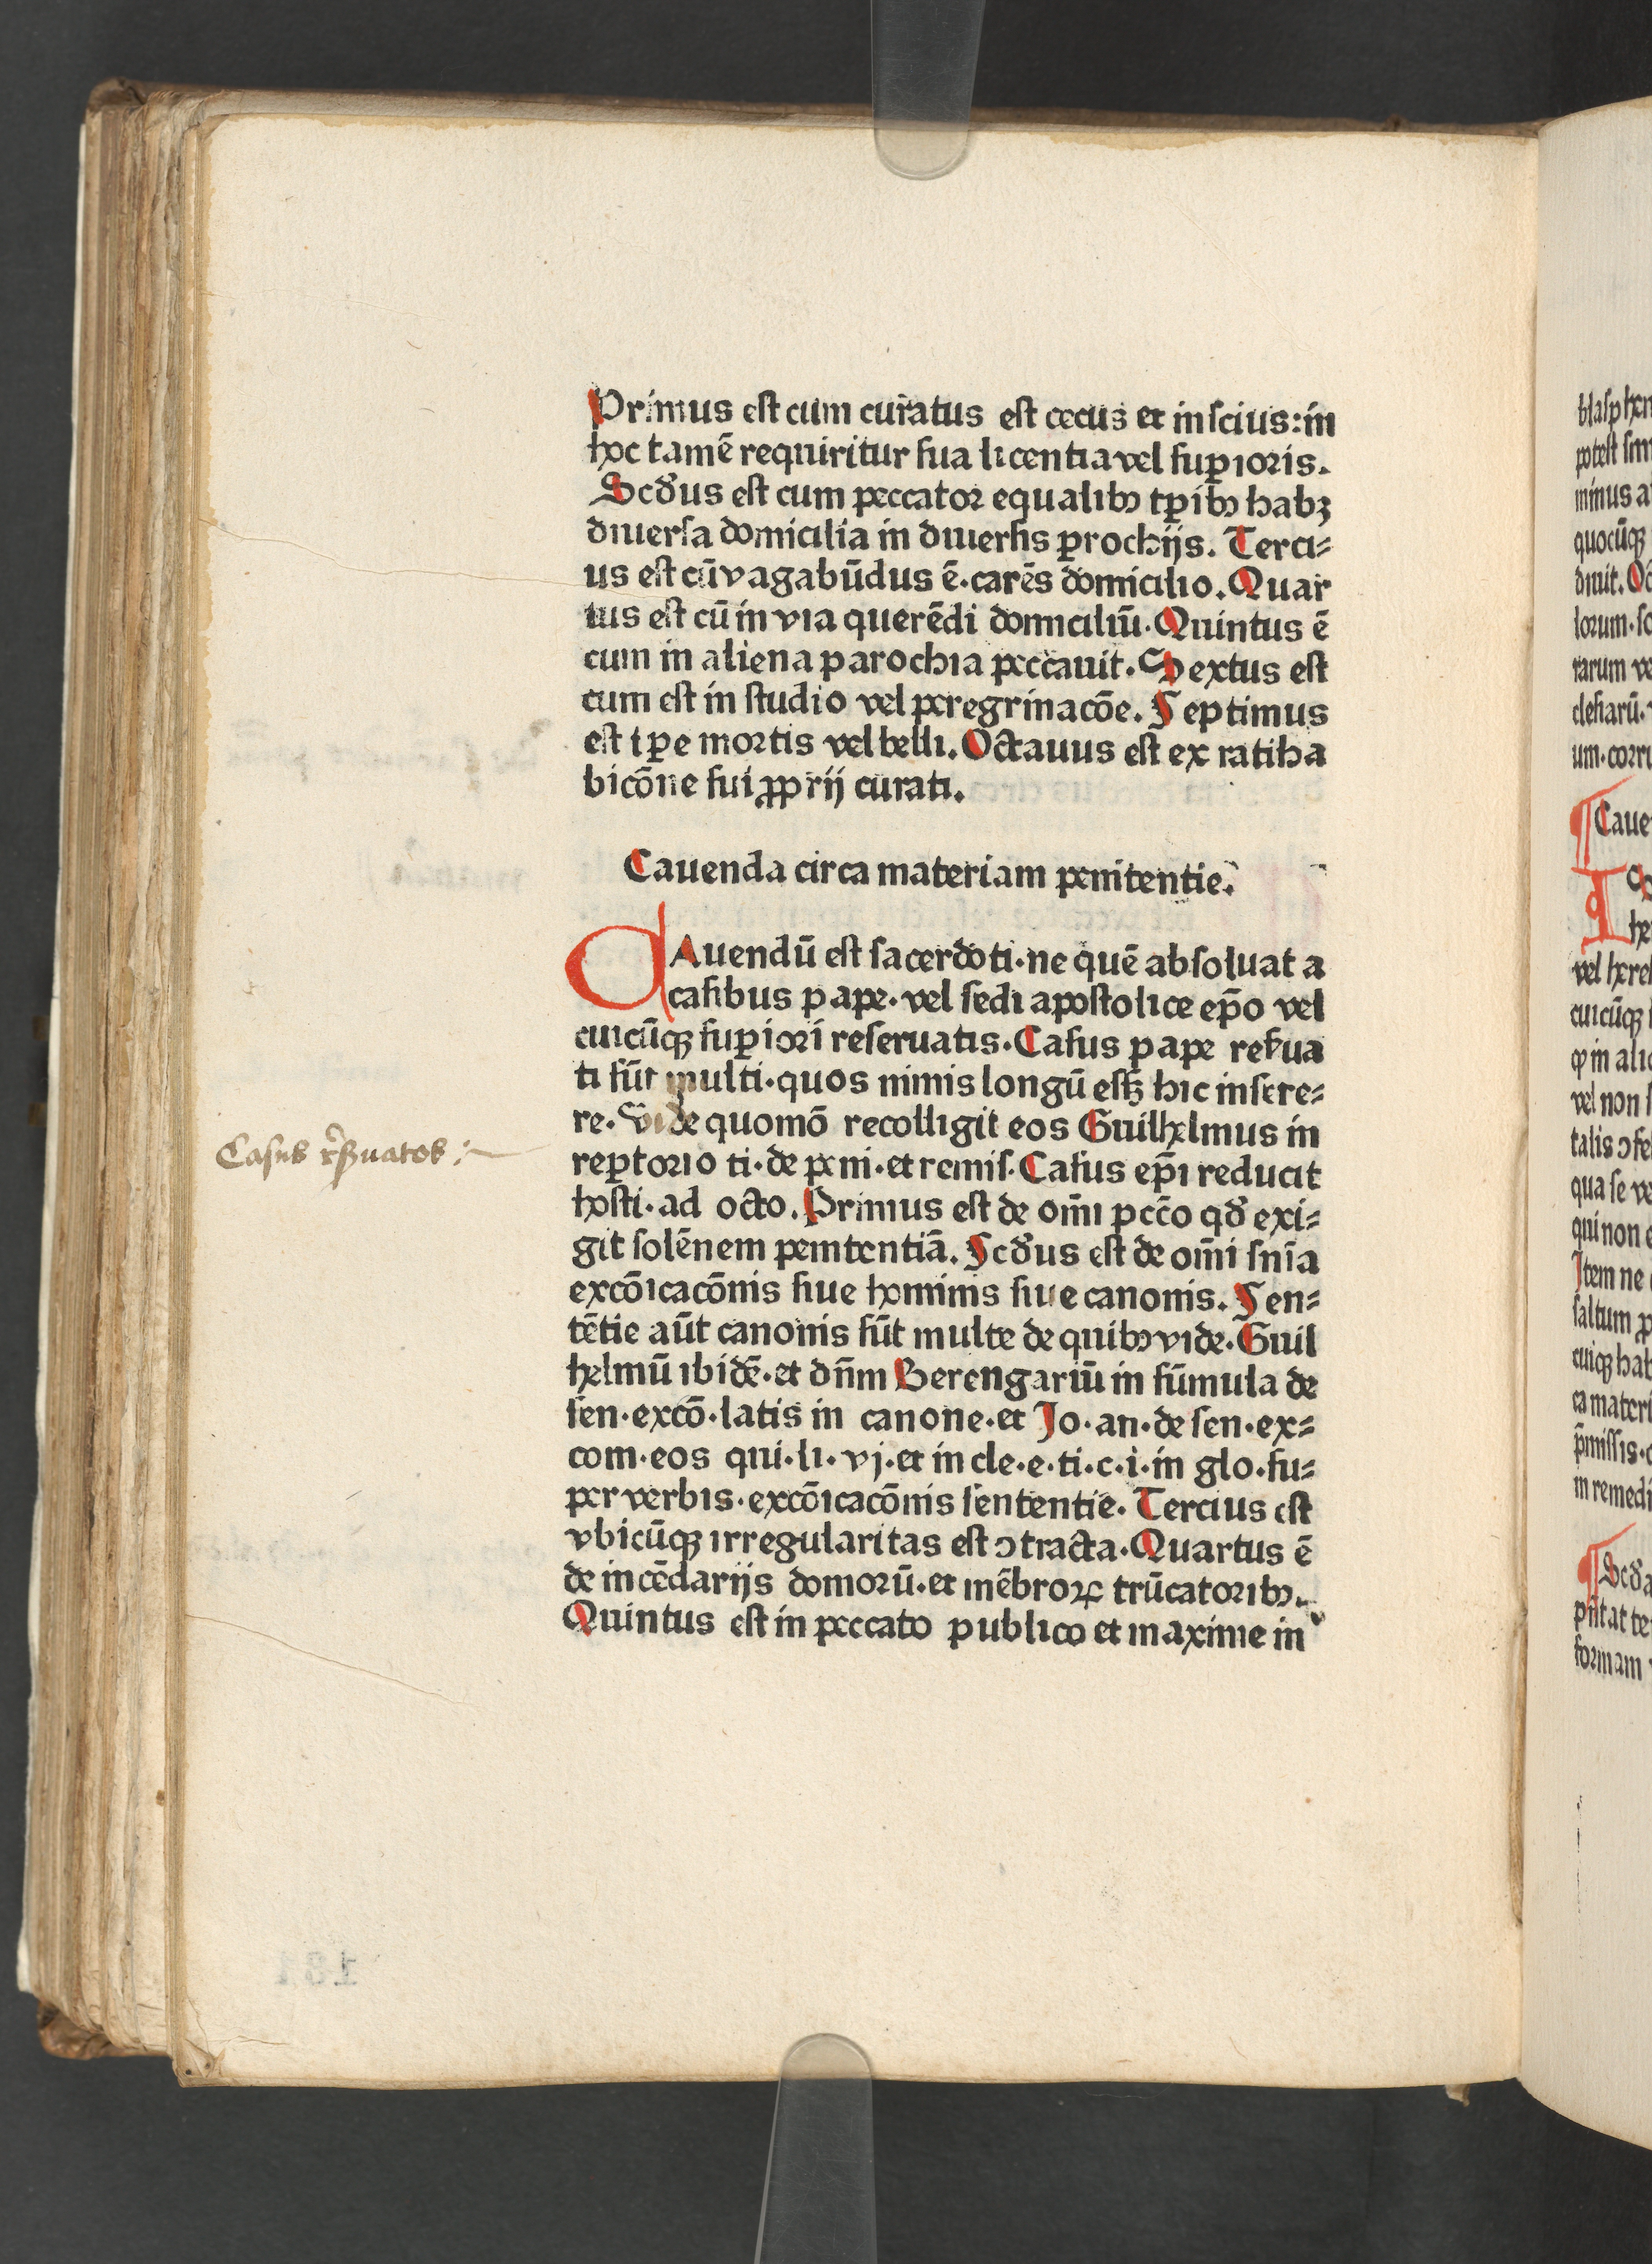 Primus est cum curatus est cecus et inscius: in
hoc tamē requiritur sua licentia vel suꝑioris.
Scđus est cum peccator equalibꝰ tꝑibꝰ habꝫ
diuersa domicilia in diuersis ꝑrochijs. Terci⸗
us est cū vagabūdus ē·carēs domicilio. Quar
tus est cū in via querēdi domiciliū· Quintus ē
cum in aliena parochia peccauit. Sextus est
cum est in studio vel peregrinacōe. Septimus
est tꝑe mortis vel belli. Octauus est ex ratiha
bicōne sui ꝓprij curati.
Cauenda circa materiam penitentie.
CAuendū est sacerdoti·ne quē absoluat a
casibus pape·vel sedi apostolice ep̄o vel
cuicūqꝫ suꝑiori reseruatis·Casus pape reẜua
ti sūt multi·quos nimis longū essꝫ hic insere⸗
re. Vide quomō recolligit eos Guilhelmus in
reꝑtorio ti·de peni·et remis·Casus ep̄i reducit
hosti·ad octo. Primus est de om̄i pccō qđ exi⸗
git solēnem penitentiā. Scđus est de om̄i sn̄ia
excōicacōnis siue hominis siue canonis. Sen⸗
tētie aūt canonis sūt multe de quibꝰ vide·Guil
helmū ibidē·et dn̄m Berengariū in sūmula de
sen·excō·latis in canone·et Jo·an·de sen·ex⸗
com·eos qui·li·vj·et in cle·e·ti·c·i·in glo·su⸗
per verbis·excōicacōnis sententie. Tercius est
vbicūqꝫ irregularitas est ꝯtracta·Quartus ē
de incēdarijs domorū·et mēbroꝝ trūcatoribꝰ.
Quintus est in peccato publico et maxime in
Casus rẜuatos :~
blasphem
potest sim
minus a
quocūqꝫ
diuit. Oc
lorum·so
rarum ve
clesiarū·
um·corru
Caue
he
vel here
cuicūqꝫ
ꝙ in alic
vel non s
talis ꝯfe
qua se ve
qui non e
Item ne
saltum ꝓ
cuiqꝫ hab
ca materi
p̄missis·
in remedi
Scđa
pn̄tat te
formam